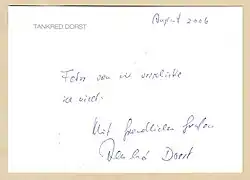 TANKRED DORST
August 2006
Fotos von mir verschicke
ich nicht.
Mit freundlichen Grüßen
Tankred Dorst